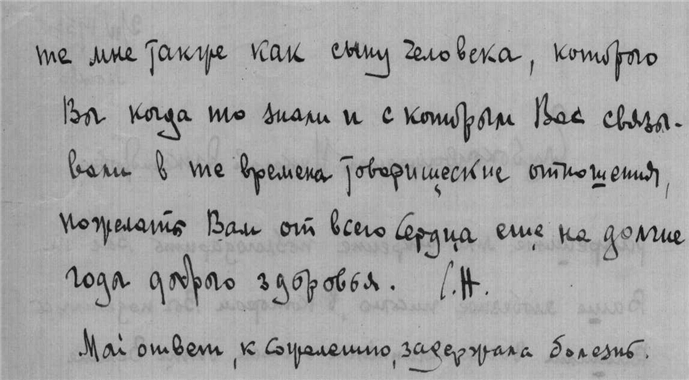 те мне также как сыну человека, которого
Вы когда то знали и с которым Вас связы-
вали в те времена товарищеские отношения,
пожелать Вам от всего сердца еще на долгие
годы доброго здоровья. С.Н.
Мой ответ, к сожалению, задержала болезнь.